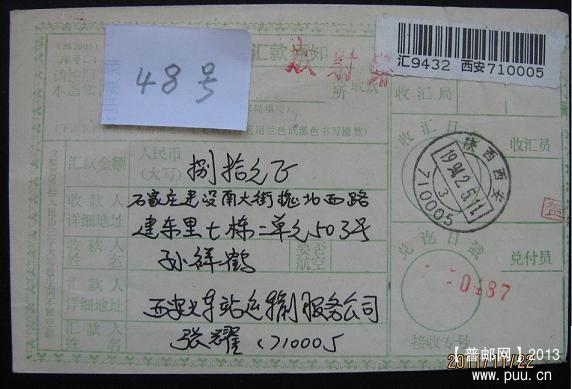 汇款通知
48号
汇9432 西安710005
收汇局
收汇日
收汇员
陕西西安
1994.2.5.11
3
710005
汇款金额 人民币(大写) 捌拾元正
收款人详细地址 石家庄建设南大街槐北西路
建东里七栋二单元503号
收款人姓名 孙祥鹤
是否航空
汇款人详细地址 西安火车站运输服务公司
汇款人姓名 张耀 (710005
兑讫日戳
兑付员
0487
接收专号
2011/11/22
【普邮网】2013
www.puu.cn